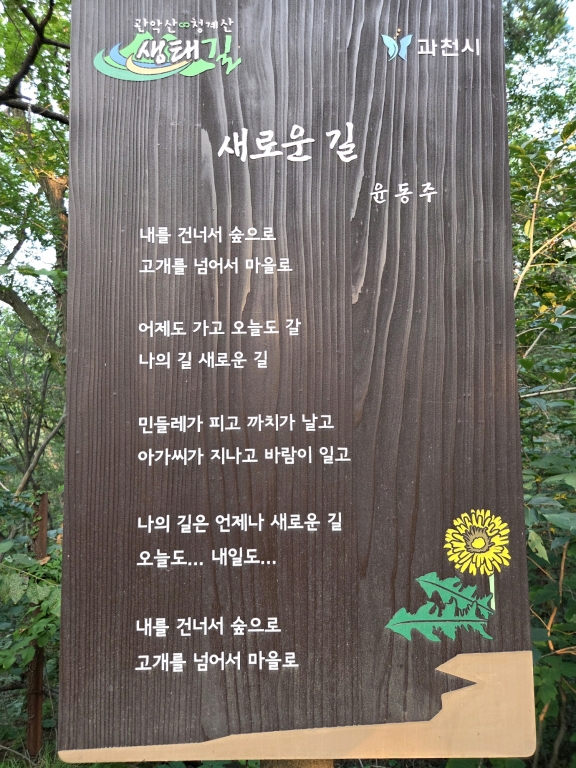 관악산∞청계산
생태길
과천시
새로운 길
윤동주
내를 건너서 숲으로
고개를 넘어서 마을로
어제도 가고 오늘도 갈
나의 길 새로운 길
민들레가 피고 까치가 날고
아가씨가 지나고 바람이 일고
나의 길은 언제나 새로운 길
오늘도... 내일도...
내를 건너서 숲으로
고개를 넘어서 마을로